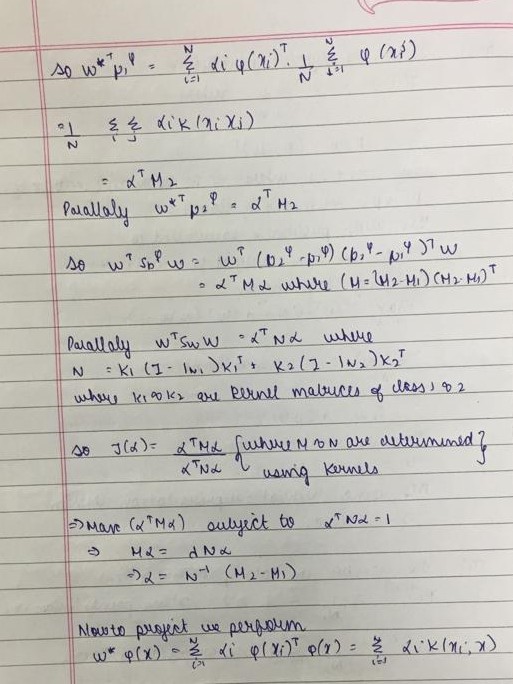 so w*ᵀ μ₁^φ = Σᵢ₌₁ᴺ αᵢ φ(xᵢ)ᵀ · 1/N Σⱼ₌₁ᴺ φ(xⱼ)
= 1/N Σᵢ Σⱼ αᵢ K(xᵢ xⱼ)
= αᵀ M₂
Parallaly w*ᵀ μ₂^φ = αᵀ M₂
so wᵀ S_b^φ w = wᵀ (μ₂^φ - μ₁^φ) (μ₂^φ - μ₁^φ)ᵀ w
= αᵀ M α where (M = (M₂-M₁) (M₂-M₁)ᵀ
Parallaly wᵀ S_w w = αᵀ N α where
N = K₁ (I - 1_N₁) K₁ᵀ + K₂ (I - 1_N₂) K₂ᵀ
where K₁ & K₂ are kernel matrices of class 1 & 2
so J(α) = αᵀMα / αᵀNα {where M & N are determined}
using Kernels
⇒ Max (αᵀMα) subject to αᵀNα = 1
⇒ Mα = λNα
⇒ α = N⁻¹ (M₂ - M₁)
Now to project we perform
w* φ(x) = Σᵢ₌₁ᴺ αᵢ φ(xᵢ)ᵀ φ(x) = Σᵢ₌₁ᴺ αᵢ K(xᵢ, x)